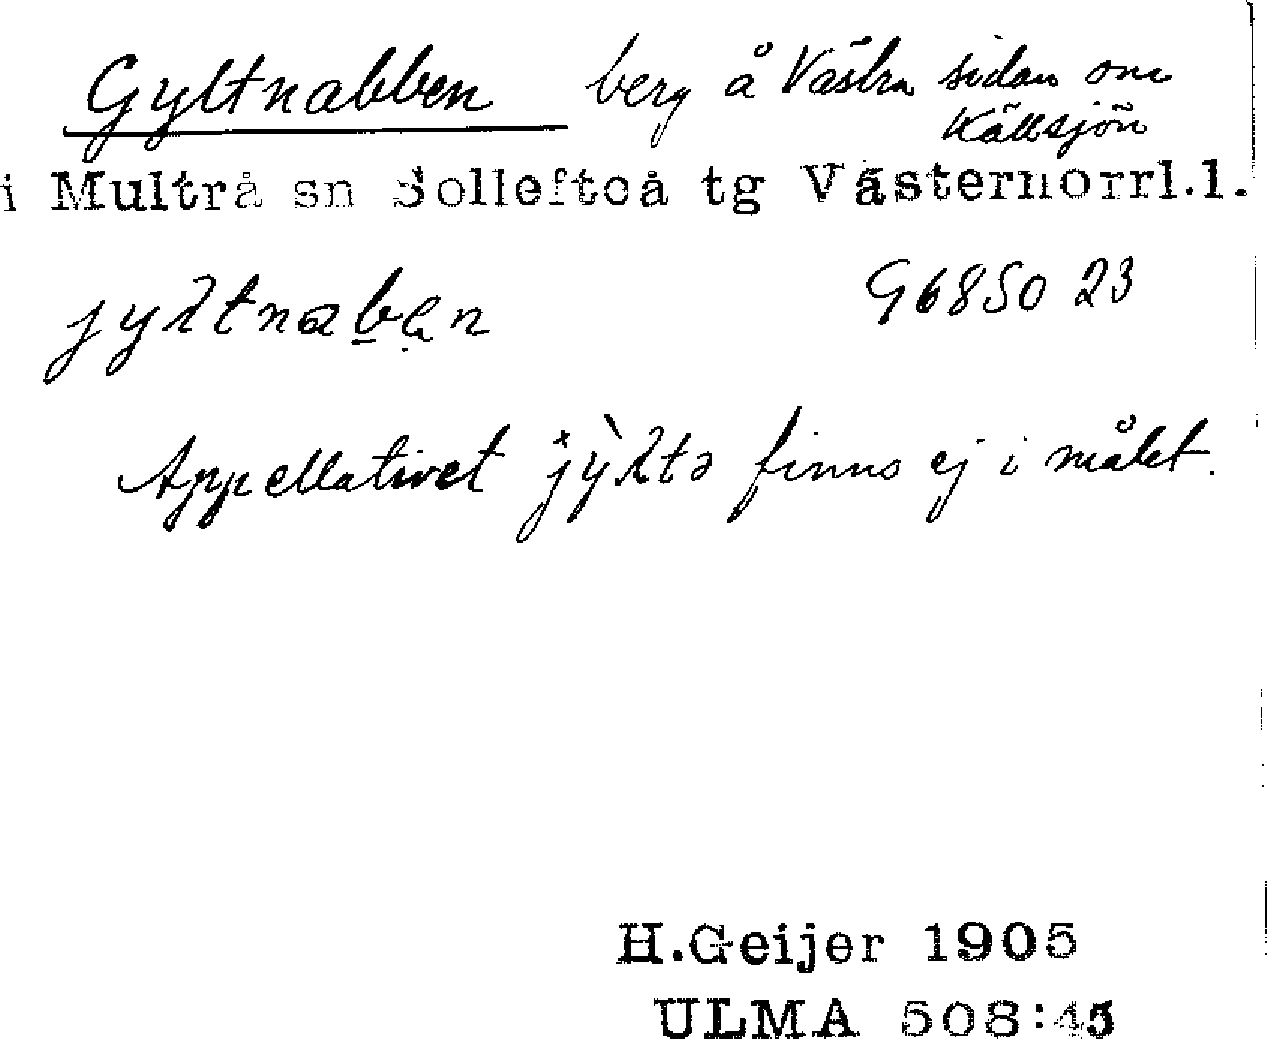 Gyltnabben berg å Västra sidan om
Källsjön
i Multrå sn Sollefteå tg Västernorrl.l.
jyltnaben G6850 23
Appellativet jỳltə finns ej i målet.
H.Geijer 1905
ULMA 508:45